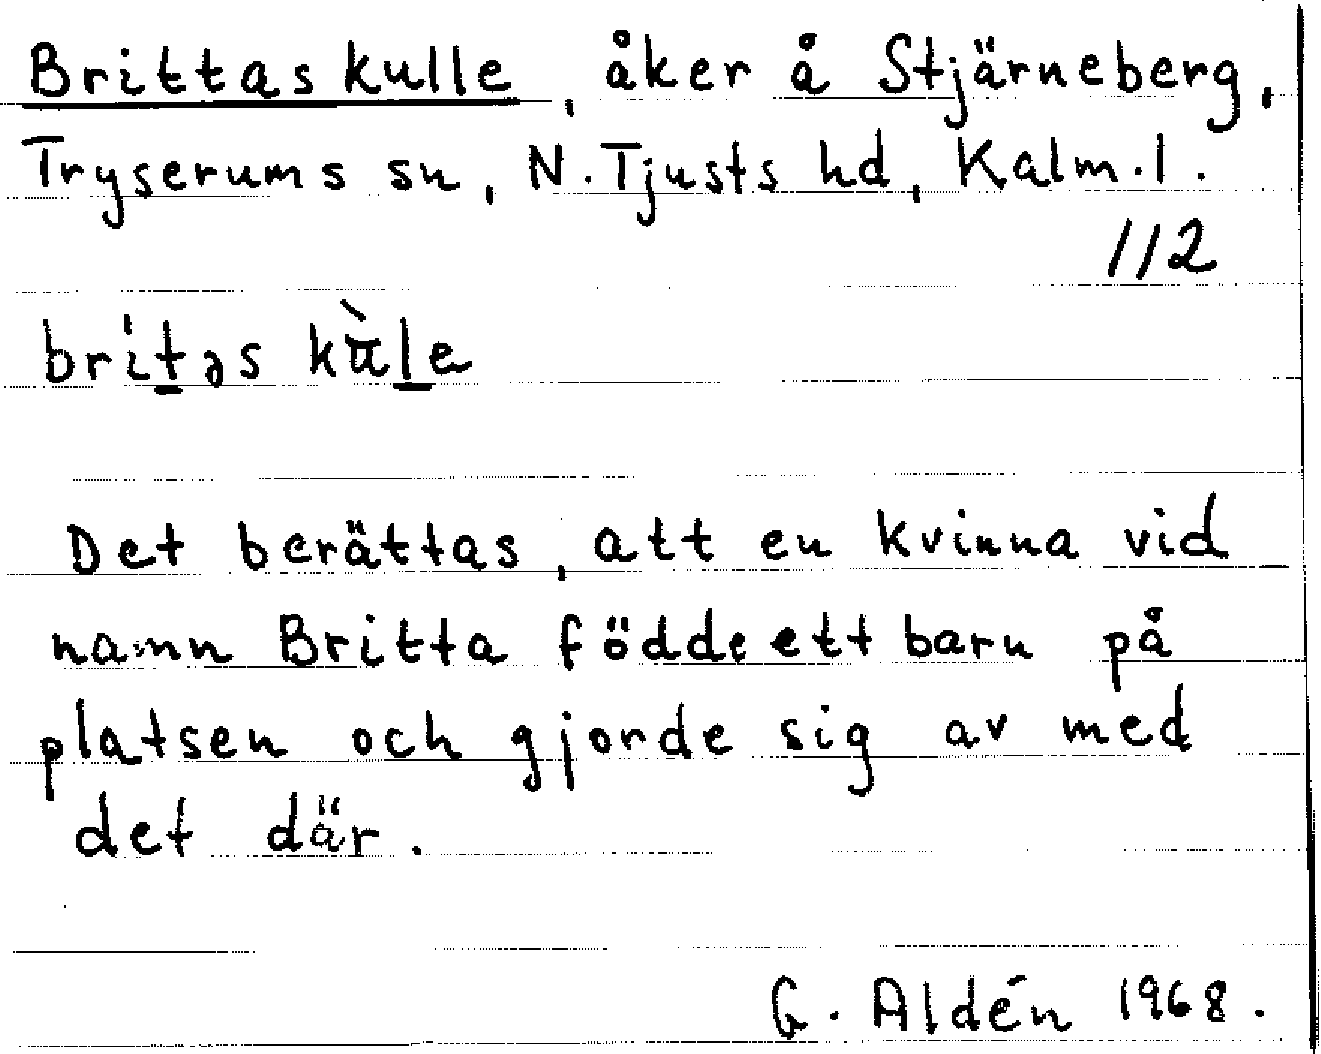 Brittas kulle, åker å Stjärneberg,
Tryserums sn, N. Tjusts hd, Kalm. l.
112
britəs kùle
Det berättas, att en kvinna vid
namn Britta födde ett barn på
platsen och gjorde sig av med
det där.
G. Aldén 1968.